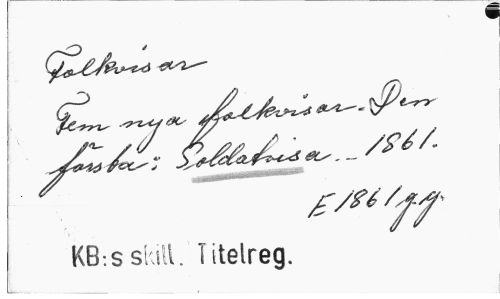 Folkvisor
Fem nya folkvisor. Den
första: Soldatvisa. - 1861.
E 1861 g.g.
KB:s skill. Titelreg.